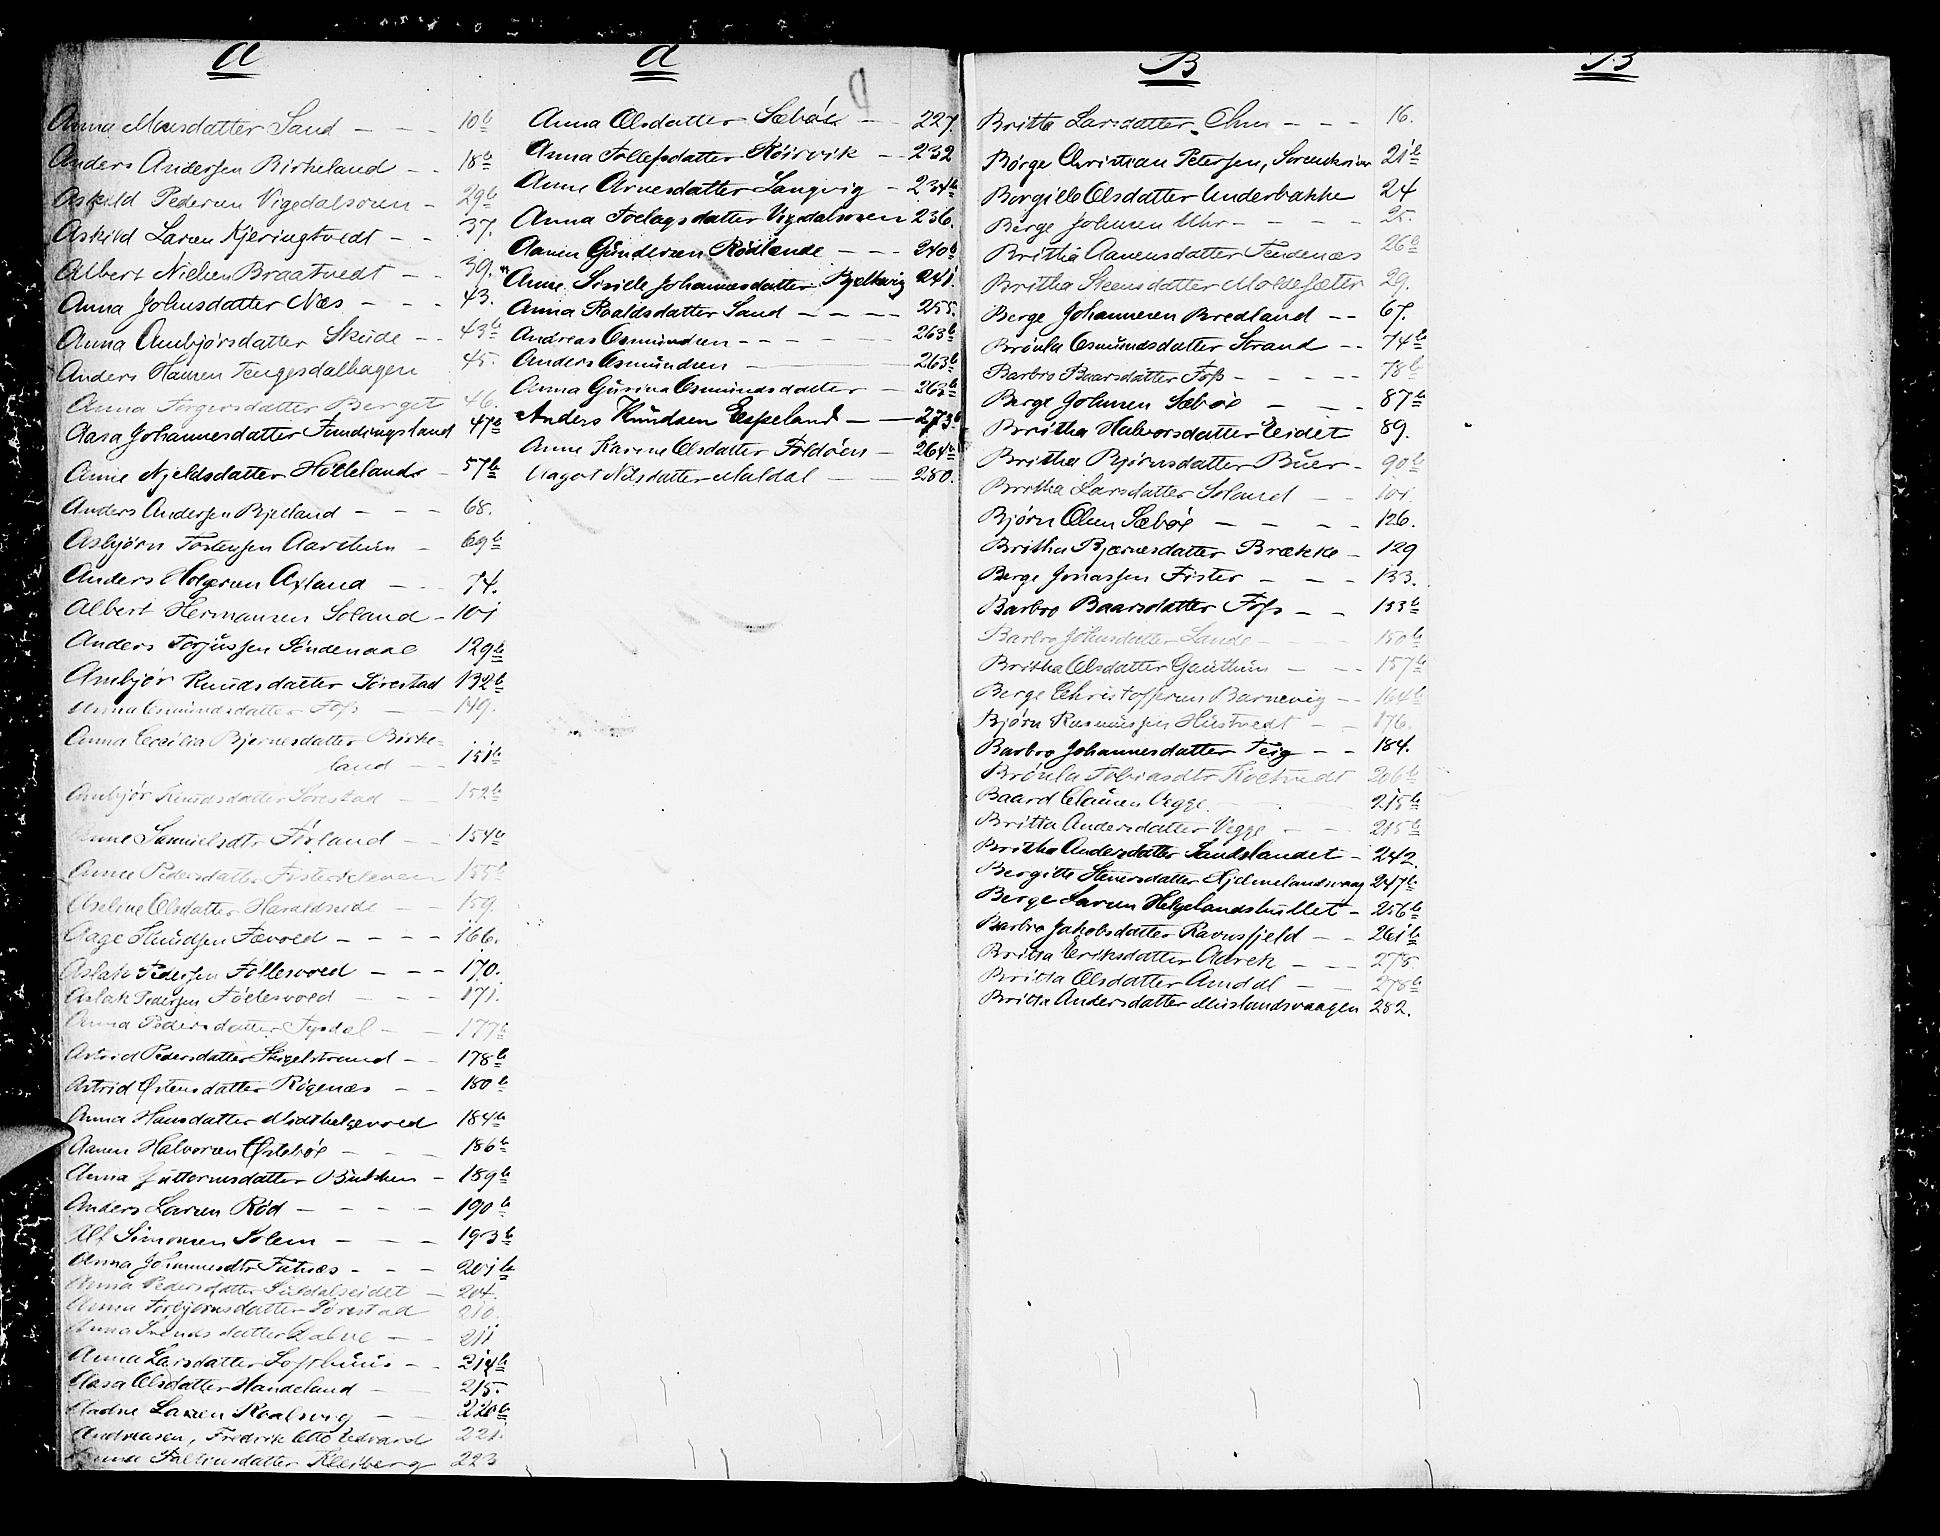 A
Anna Monsdatter Sand - - - 10b
Anders Andersen Birkeland - - 18b
Askild Pedersen Vigedalsøren - 29b
Askild Larsen Kjeringtvedt - - 37.
Albert Nielsen Braatvedt - - 39.
Anna Johnsdatter Næs - - - 43.
Anna Anbjørsdatter Skude - - 43b
Anders Hansen Tengesdalhagen 45.
Anna Torgersdatter Berget 46.
Aasa Johannesdatter Tundingsland 47b
Anne Njeldsdatter Hølleland - 57b
Anders Andersen Bjelland - - - 68.
Asbjørn Tostensen Aarthun - 69b
Anders Holgersen Axland - - 74.
Albert Hermansen Soland - 101
Anders Torjussen Søndenaae 129b
Anbjør Knudsdatter Sørestad 132b
Anna Osmundsdatter Foss - - 149.
Anna Cecilia Bjørnesdatter Birke-
land - - 151b
Anbjør Knudsdatter Sørestad - 152b
Anne Samuelsdtr Førland - - 154b
Anne Pedersdatter 155b
Aseline Olsdatter Haraldseide - - 159.
Aage Knudsen Fævold - - - - 166.
Aslak Pedersen Follesvoed - - - 170.
Aslak Pedersen Foelesvoed - - - 171.
Anna Pedersdatter Tysdal - - 177b
Astrid Pedersdatter Skigelstrand - - 178b
Astrid Østensdatter Røgenæs - - 180b
Anna Hansdatter Midthelgevoed 184b
Aanen Halvorsen Østebøe - - - 186b
Anna Guttormsdatter - 189b
Anders Larsen Rød - - - - 190b
Alf Simonsen Solem - - - 193b
Anna Johannesdtr Futnæs - - - 201b
Anna Pedersdatter Suldalseidet - 204.
Anna Torbjørnsdatter Sørestad 210.
Anna datter - - 211
Anna Larsdatter Lofthuus - - 214b
Aasa Olsdatter Handeland - - 215.
Larsen Roalsvig - - 220b
Andreasen, Fredrik Otto Edvard 221.
Anna datter Kleiberg 223
A
Anna Olsdatter Sæbøe - - 227.
Anna Tollefsdatter Røirvik - - 232
Anne Arnesdatter Langvig - 234b
Anna Toelagsdatter Vigedalsøren 236.
Aanen Gundersen Rødlande - - - 240b
Anne Sisille Johannesdatter Bjelkevig 241.
Anna Roaldsdatter Sand - - - - 255.
Andreas Osmundsen - - - - 263b
Anders Osmundsen - 263b
Anna Gurina Osmundsdatter - 263b
Anders Knudsen Espeland - - 273b
Anne Karine Olsdatter Foldøen - 264b
Aagot Nilsdatter Maldal - - 280.
B
Britta Larsdatter Ohm - - - 16.
Børge Christian Petersen, Sorenskriver 21b
Borgille Olsdatter Underbakke 24
Berge Johnsen Uhr - - - - 25.
Britha Aanensdatter Tendenæs 26b
Britha Steensdatter Moldesæter 29.
Berge Johannesen Bredland - - 67.
Brønla Osmundsdatter Strand - - 74b
Barbro Baarsdatter Foss - - - - 78b
Berge Johnsen Sæbøe - - - 87b
Britha Halvorsdatter Eidet 89.
Britha Bjørnsdatter Buer - 90b
Britha Larsdatter Soland - - 101.
Bjørn Olsen Sæbøe - - - - 126.
Britha Bjørnesdatter Brække - 129
Berge Jonassen Fister - - - 133.
Barbro Baarsdatter Foss - - 133b
Barbro Johnsdatter Lande - - - 150b
Britha Olsdatter Gauthun - - - 157b
Berge Christoffersen Barnevig - - 164b
Bjørn Rasmussen Hustvedt - - 176.
Barbro Johannesdatter Teig - - 184.
Brønla Tobiasdtr 206b
Baard Clausen Vegge - - - 215b
Britta Andersdatter Vegge - - 215b
Britha Andersdatter Sandslandet - 242.
Bergitte Stenersdatter Hjelmelandsvaag 247b
Berge Larsen Helgelandshullet - 256b
Barbro Jakobsdatter Ravnsfjeld - - 261b
Britta Eriksdatter Aarek - - - 275
Britta Olsdatter Amdal - - 278b
Britta Andersdatter Mæslandsvaagen 282.
B